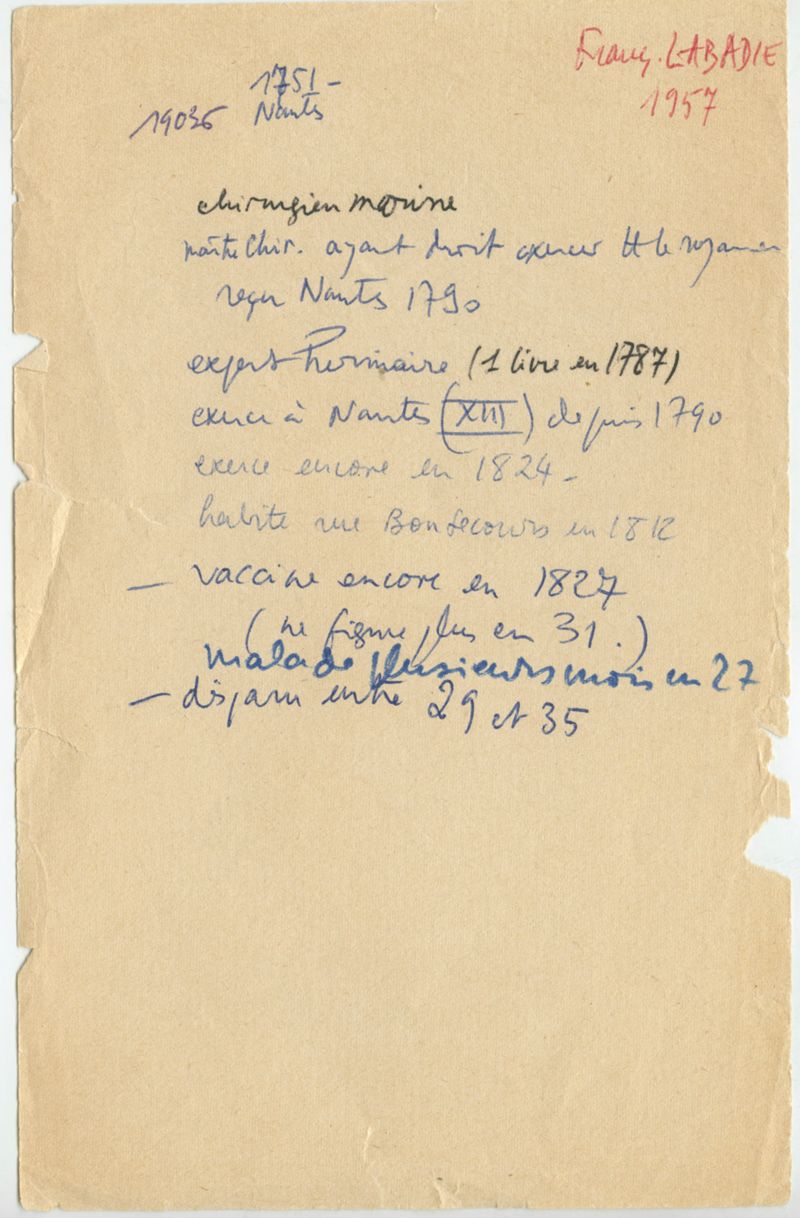 Franç. LABADIE
1957
1751-
19036 Nantes
chirurgien marine
maître Chir. ayant droit exercer tt le royaume
reçu Nantes 1790
expert herniaire (1 livre en 1787)
exerce à Nantes (XIII) depuis 1790
exerce encore en 1824 -
habite rue Bonsecours en 1812
- vaccine encore en 1827
(ne figure plus en 31.)
malade plusieurs mois en 27
- disparu entre 29 et 35